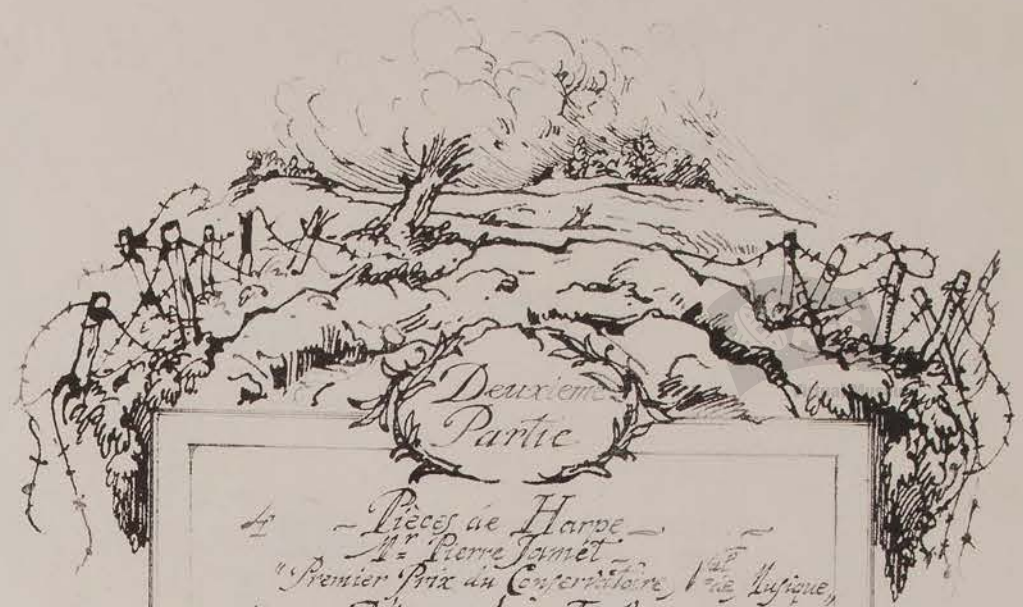 Deuxieme
Partie
4 - Pièces de Harpe -
Mr Pierre Jamet
"Premier Prix du Conservatoire de Musique"